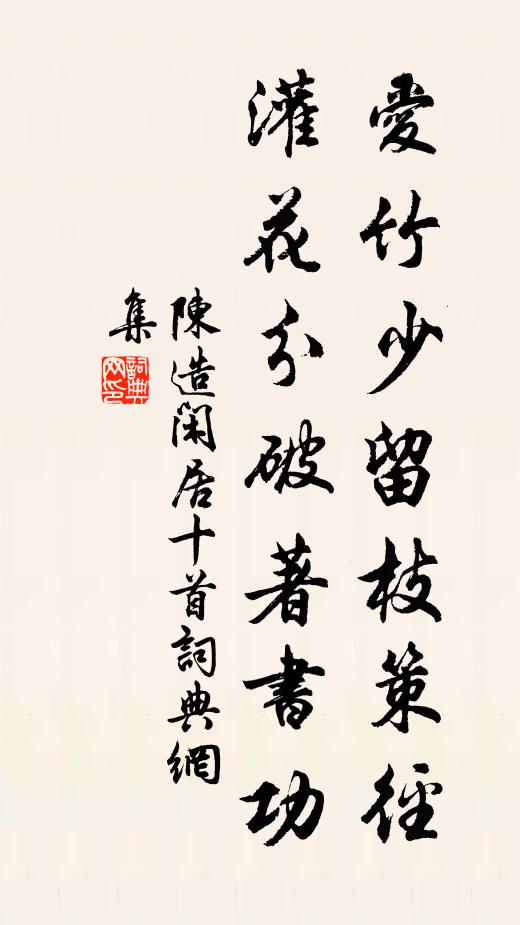 愛竹少留枝策徑
灌花分破著書功
陳造閑居十首詞典網
集
詞典网印